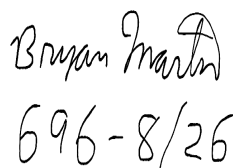 Bryan Martin
696-8/26